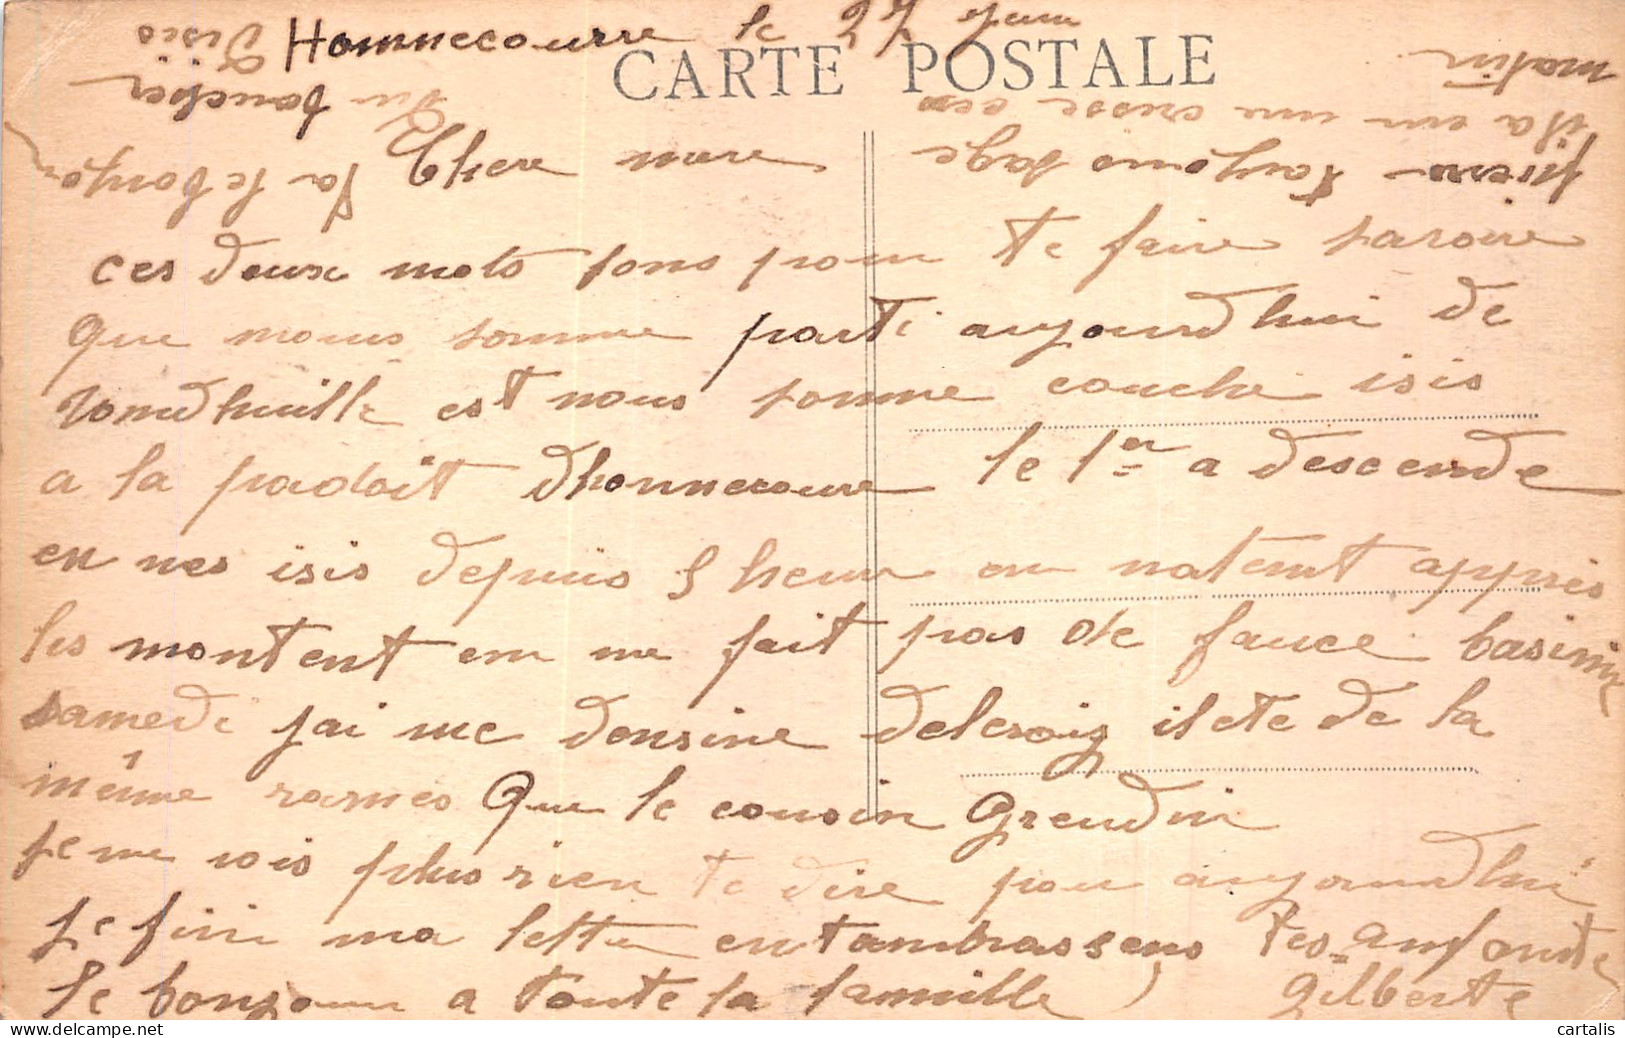 Honnecourre le 27 juin
CARTE POSTALE
Chere mere
ces deux mots sons pour te faire savoire
que nous somme parti aujourdhui de
vendhuille est nous somme couche isis
a la dhonnecoure le 1er a descende
en nes isis depuis 5 heur on natent appres
les montent on ne fait pas de fauce basinne
samedi jai vue densine delcroix il ete de la
même rames que le cousin Grendin
je ne vois plus rien te dire pour aujourdhui
je fini ma lettre en tambrassens tes anfants
le bonjour a toute la famille Gilberte
pierre toujours sage
il a eu une crisse ces
matin
sa le bonjour
du boucher
disis
cartalis